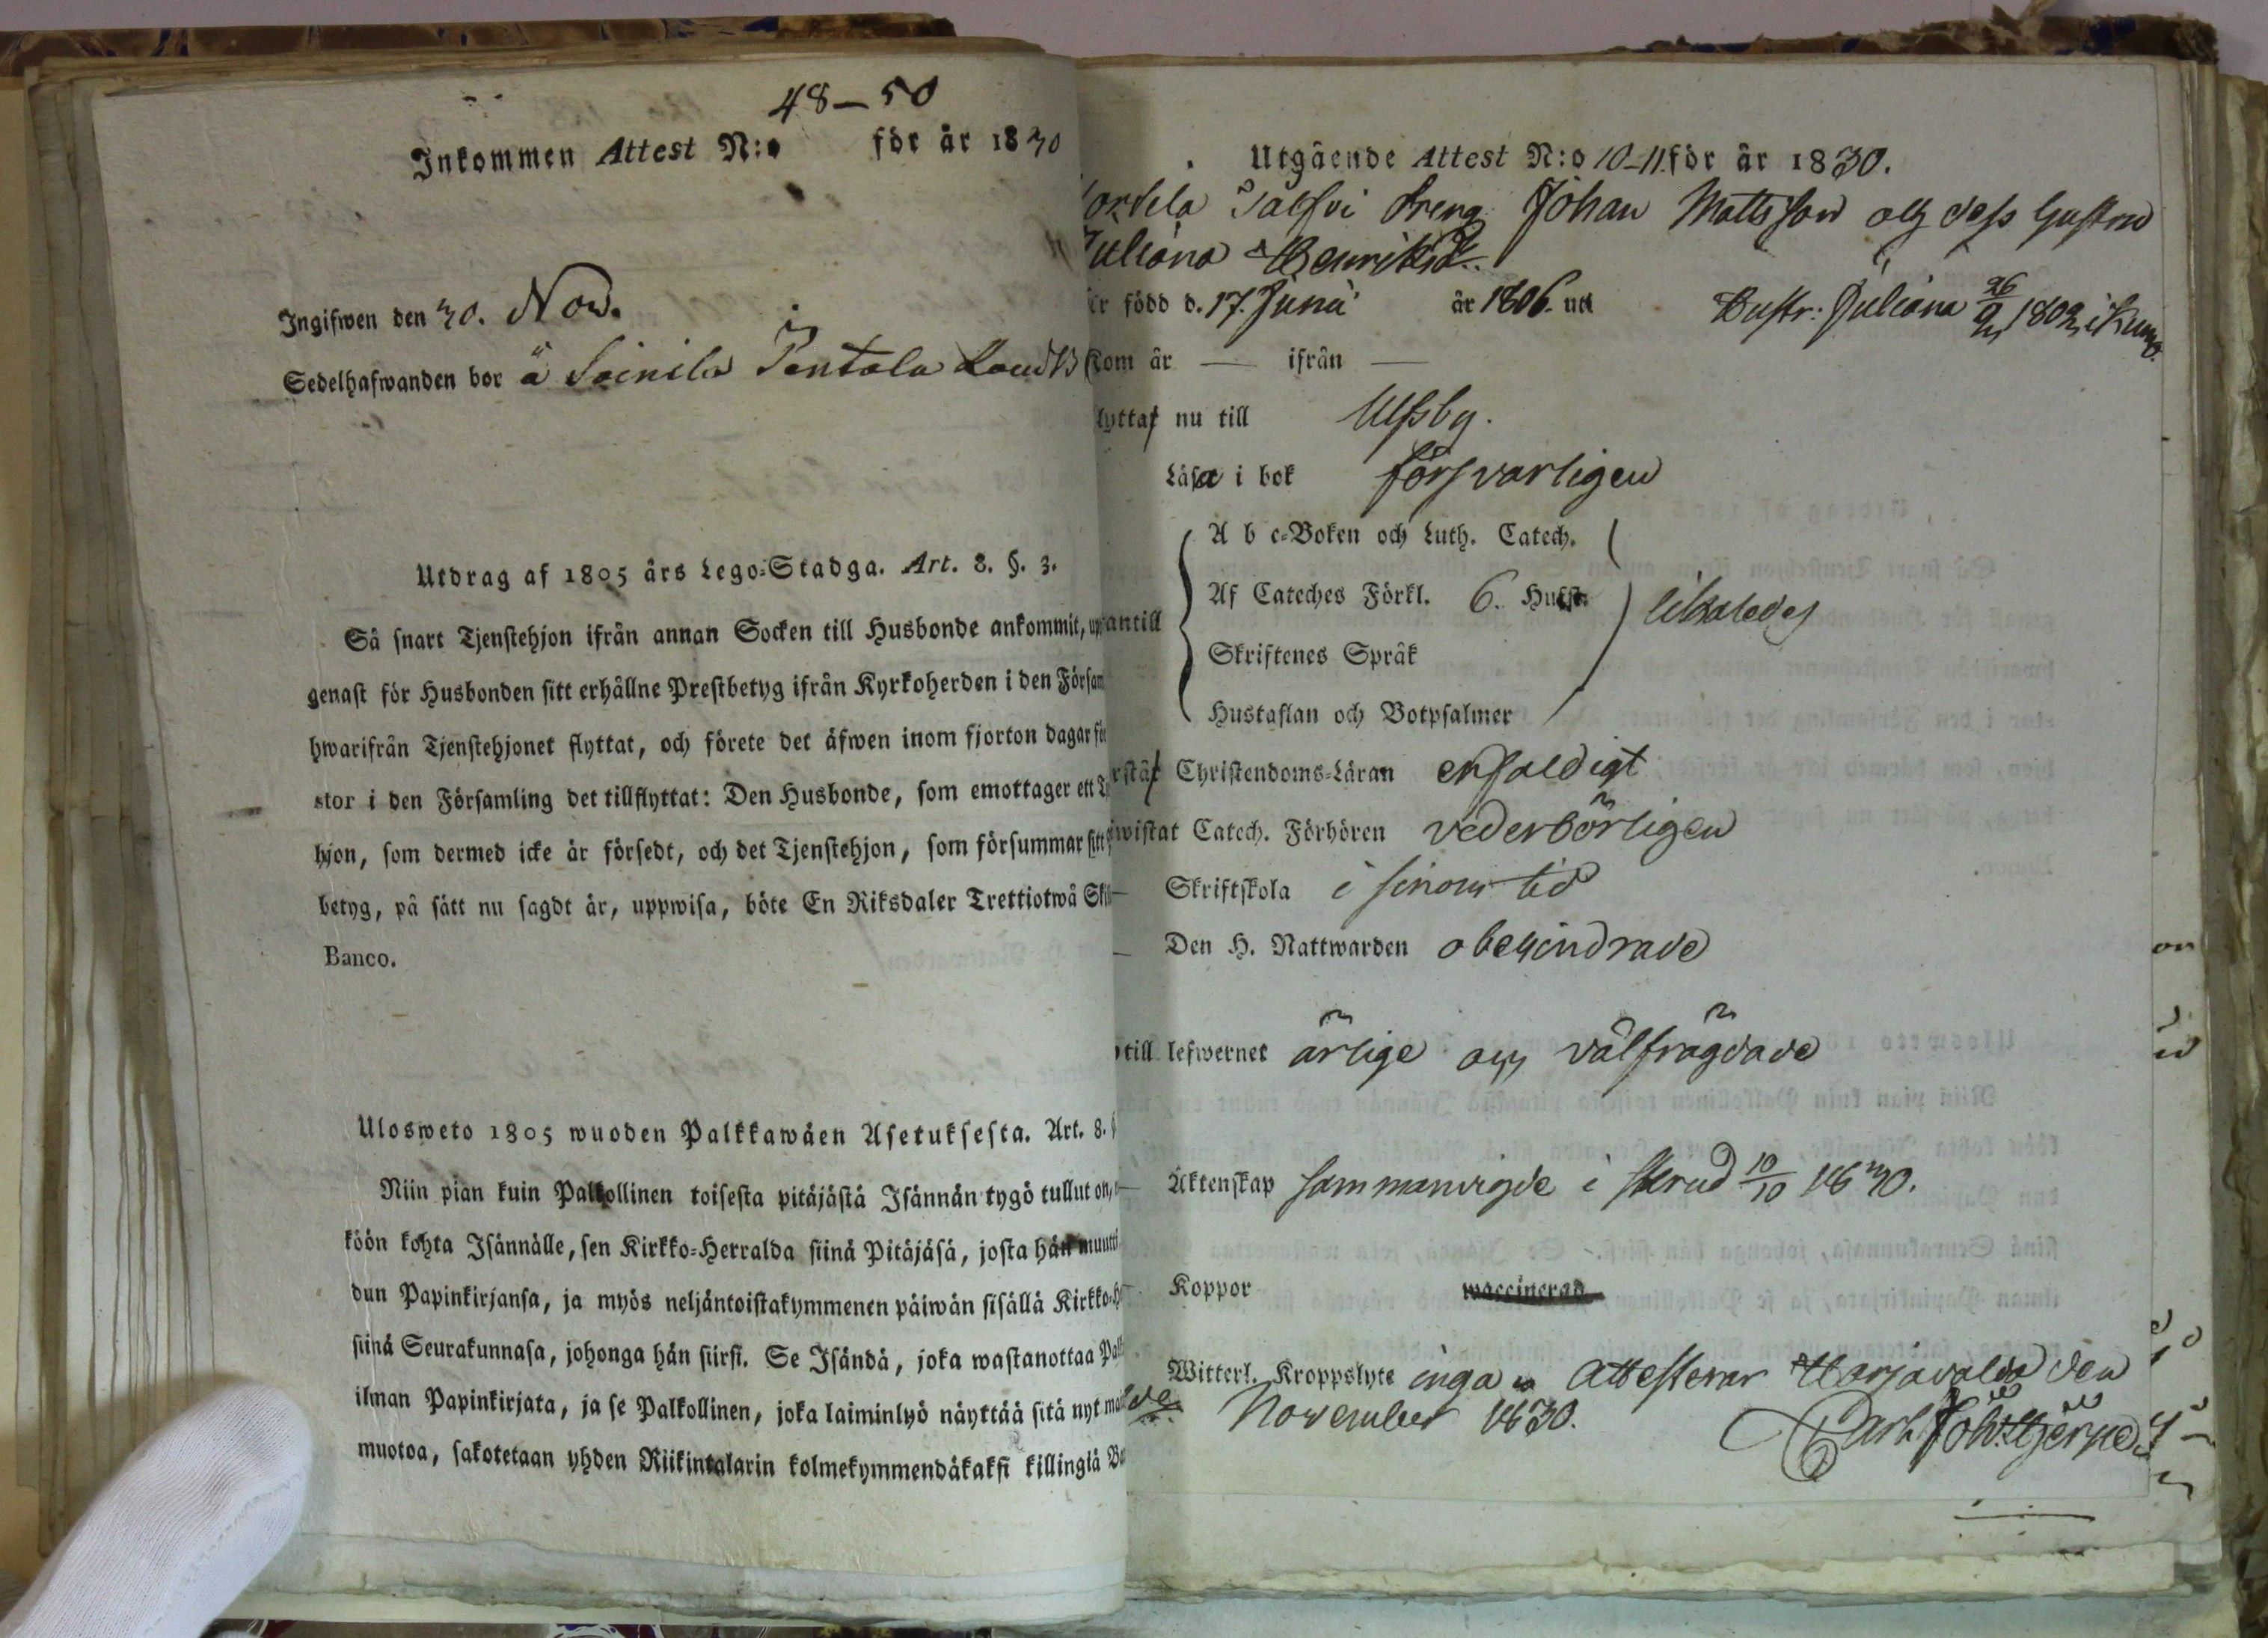 48–50
Inkommen Attest N:o för år 1830
Ingifwen den 30. Nov.
Sedelhafwanden bor å Soinila Pentala
Utdrag af 1805 års Lego-Stadga. Art. 8. §. 3.
Så snart Tjenstehjon ifrån annan Socken till Husbonde ankommit,
genast för Husbonden sitt erhållne Prestbetyg ifrån Kyrkoherden i den
hwarifrån Tjenstehjonet flyttat, och förete det äfwen inom fjorton dagar
stor i den Församling det tillflyttat: Den Husbonde, som emottager ett
hjon, som dermed icke är försedt, och det Tjenstehjon, som försummar sitt
betyg, på sätt nu sagdt är, uppwisa, böte En Riksdaler Trettiotwå
Banco.
Ulosweto 1805 wuoden Palkkawäen Asetuksesta. Art. 8.
Niin pian kuin Palkollinen toisesta pitäjästä Isännän tygö tullut on,
köön kohta Isännälle, sen Kirkko-Herralda siinä Pitäjäsä, josta hän
dun Papinkirjansa, ja myös neljäntoistakymmenen päiwän sisällä
siinä Seurakunnasa, johonga hän siirsi. Se Isändä, joka wastanottaa
ilman Papinkirjata, ja se Palkollinen, joka laiminlyö näyttää sitä nyt
muotoa, sakotetaan yhden Riikintalarin kolmekymmendäkaksi killingiä
Utgående Attest N:o 10–11. för år 1830.
Dreng Johan Mattsson och dess hustru
Juliana Henriksdr.
född d. 17. Junii år 1806. Hustr: Juliana 26/9 1802 i
Kom år — ifrån —
nu till Ulfsby.
Läsa i bok försvarligen
A b c-Boken och Luth. Catech.
antill Af Cateches Förkl. 6. Hufst. likaledes
Skriftenes Språk
Hustaflan och Botpsalmer
Christendoms-Läran enfaldigt
wistat Catech. Förhören vederbörligen
— Skriftskola i sinom tid
— Den H. Nattwarden obehindrade
till lefwernet ärlige och välfrägdade
— Äktenskap sammanvigde i 10/10 1830.
Koppor waccinerad
Witterl. Kroppslyte inga attesterar Harjavalda den
November 1830. Carl Joh.